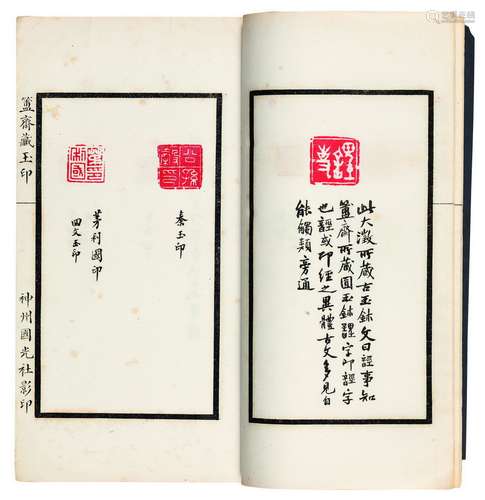 此大澂所藏古玉鉨文曰誙事知
簠齋所藏圓玉鉨字即誙字
也誙或即經之異體古文多見自
能觸類旁通
公孫穀印
秦玉印
利國印
回文玉印
簠齋藏玉印
神州國光社影印